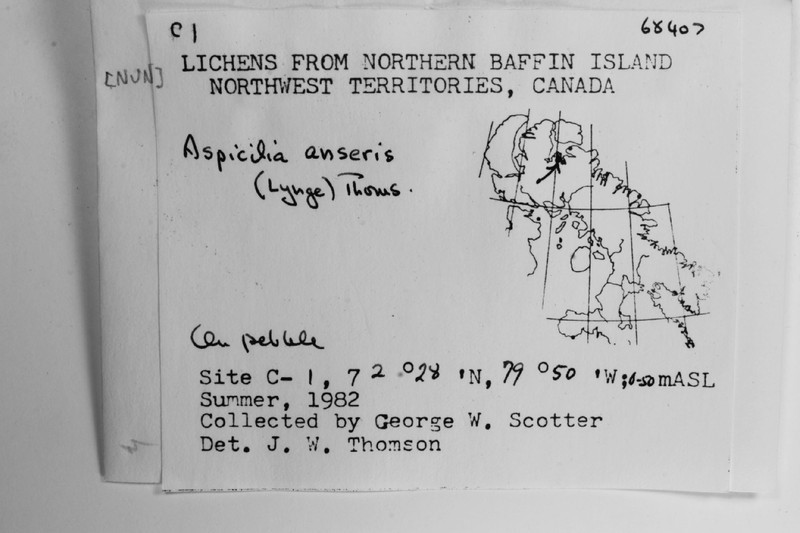 C 1
68407
LICHENS FROM NORTHERN BAFFIN ISLAND
[NUN]
NORTHWEST TERRITORIES, CANADA
Aspicilia anseris
(Lynge) Thoms.
On pebble
Site C- 1, 72 °28 'N, 79 °50 'W; 0-50mASL
Summer, 1982
Collected by George W. Scotter
Det. J. W. Thomson